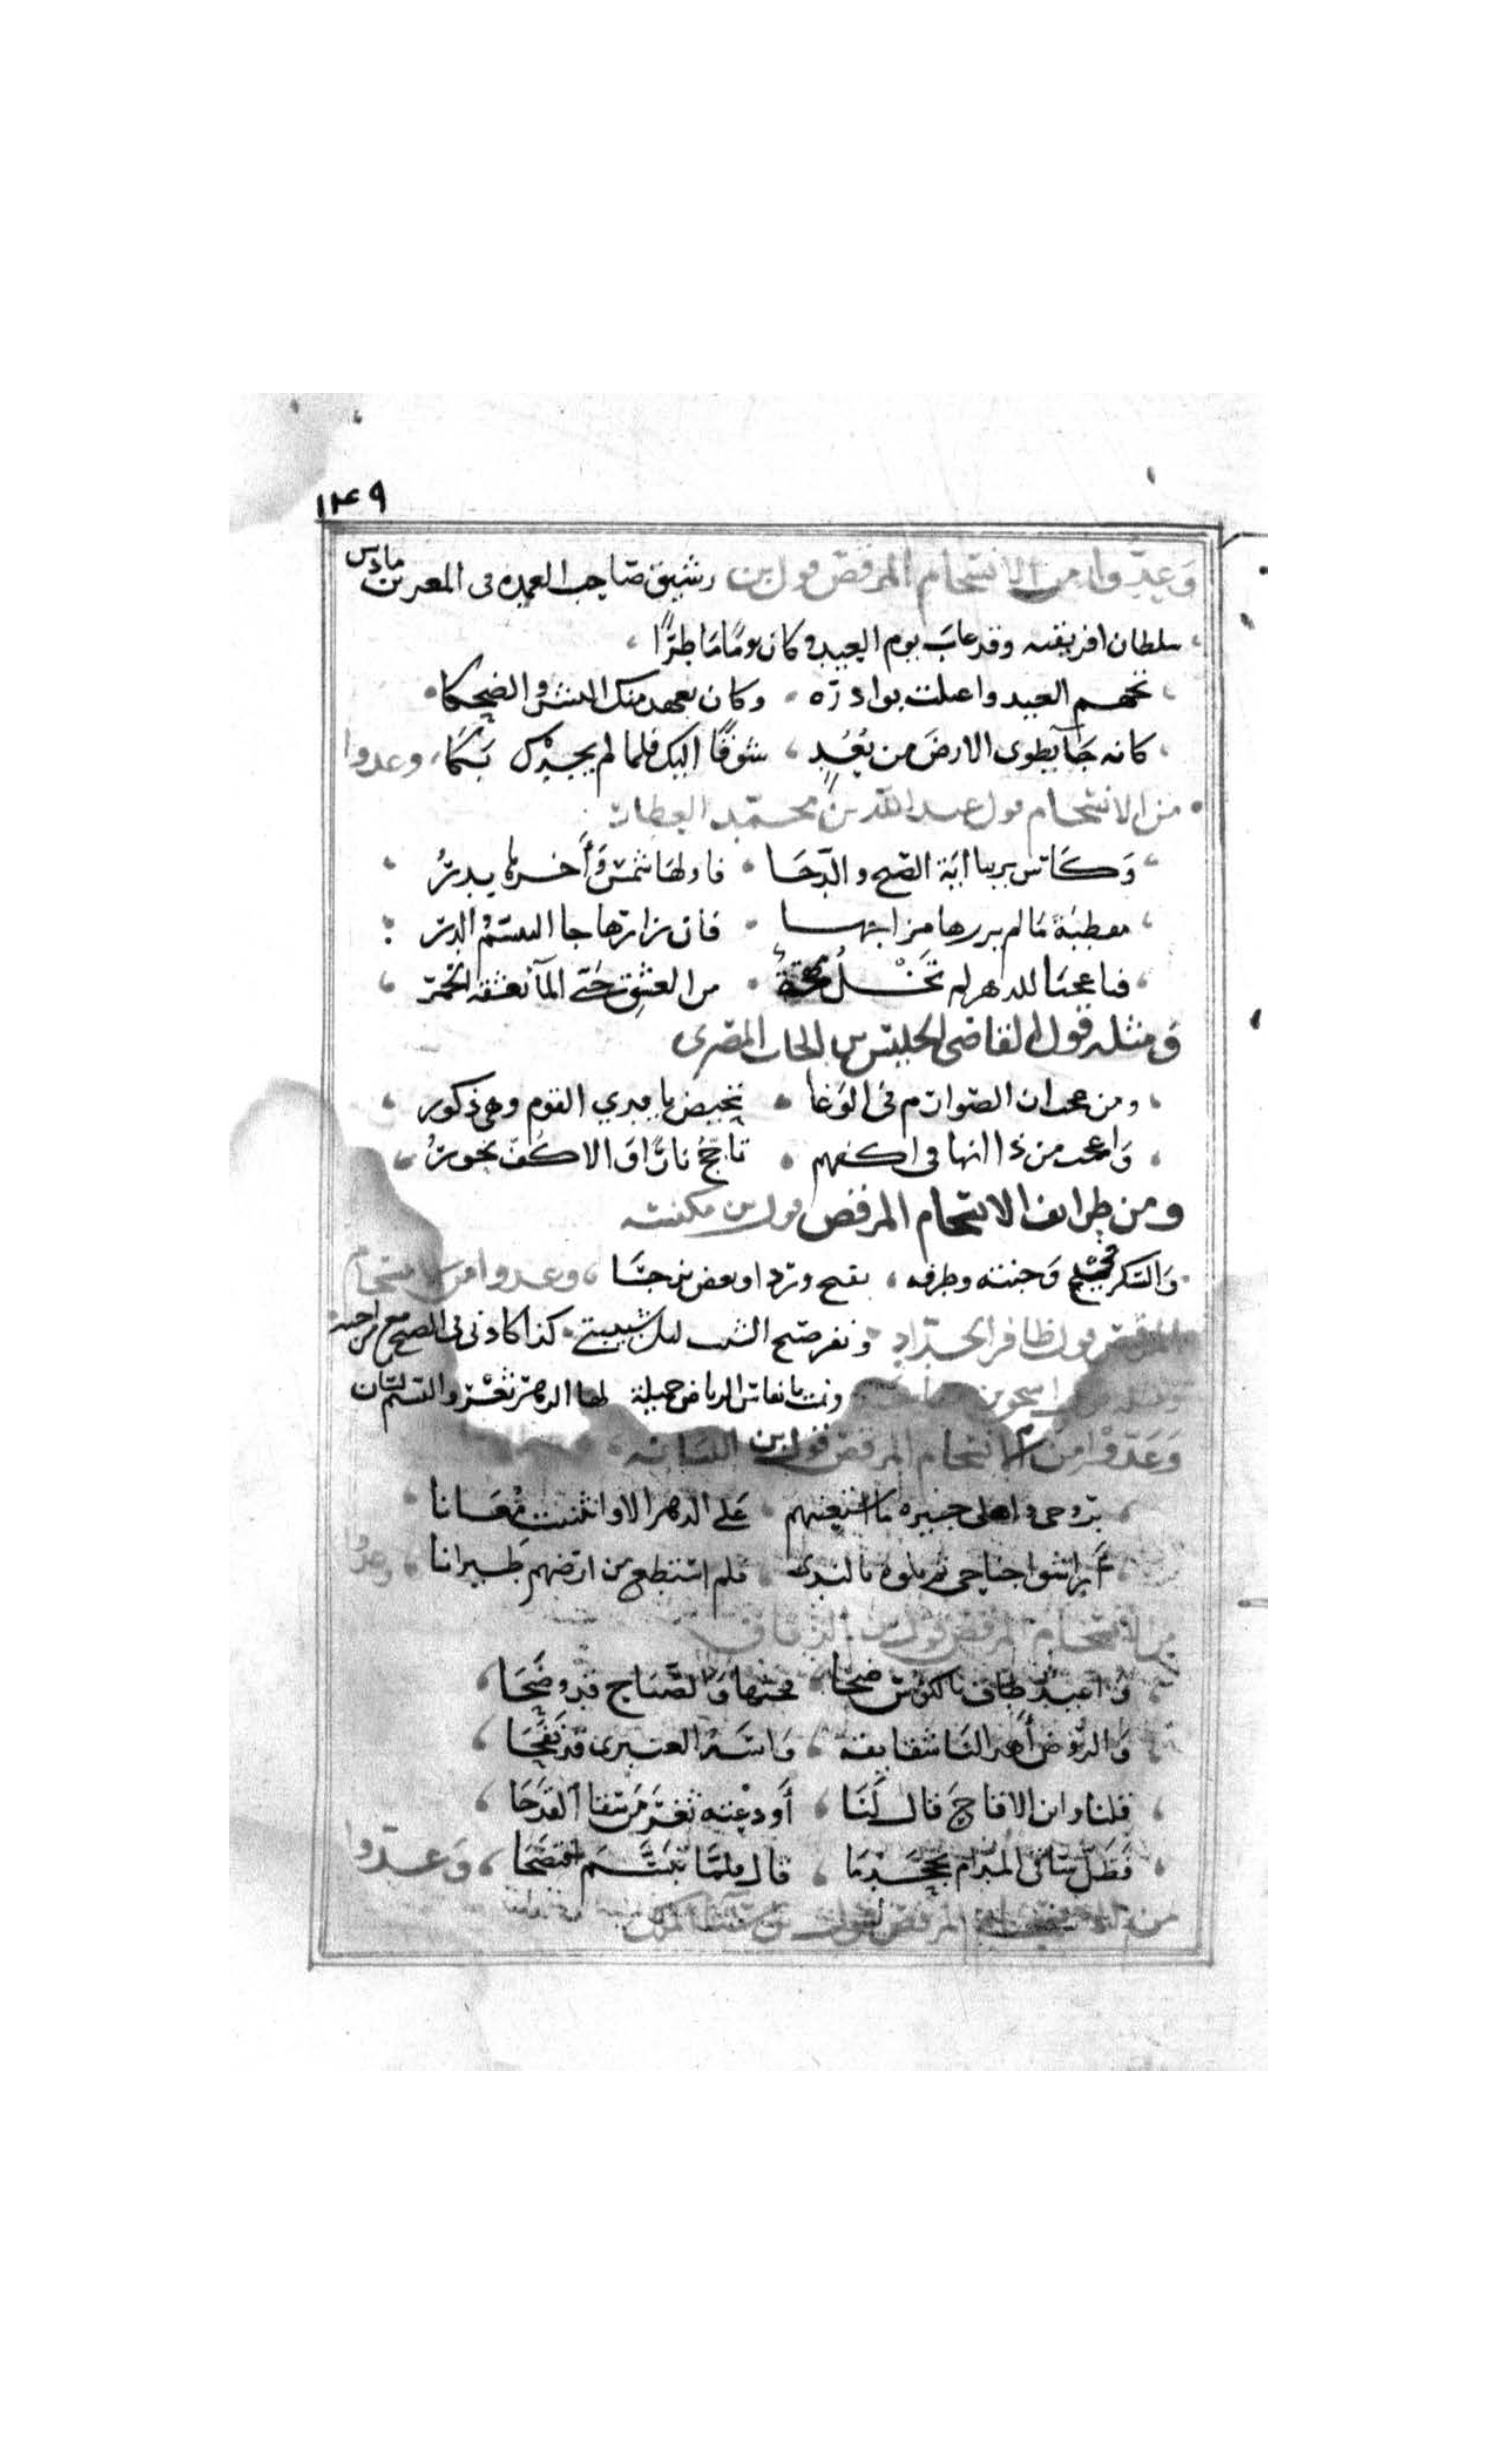 ١٤٩
وعدوا من الانسجام المرقص قول بن رشيق صاحب العمده فى المعز بن بادس
سلطان افريقيه وقد غاب يوم العيد وكان يومًا ماطرًا
تجهم العيد واهلت بوادره وكان يعهد منك البشر والضحكا
كانه جَآ يطوى الارضَ من بُعُدٍ شوقًا اليك فلما لم يجدك بَكَا، وعدوا
من الانسجام قول عبد الله بن محمد العطار
وَكَاس يرينا ايَة الصبح والدجَا فاولهَا شمس وَأخرها بدرُ
مقطبَة مَا لم يزرها مزاجها فان زارها جا التبسم والبشر
فيا عجبًا للدهر لم تَخْلُ مهجةُ من العشق حَتى المآ تعشقه الخمرُ
وَمثله قول القاضى الجليس بن الحباب المصرى
ومن عجب ان الصوارم فى الوَغا تحيض بايدي القوم وهى ذكور
وَاعجب من ذا انها فى اكفهم تاججُ نارًا وَالاكف بحورُ
ومن طرايف الانسجام المرقص قول بن مكنسه
وَالسكر فى وَجنته وطرفه يفتح وردا ويغض نرجسَا، وعدوا من الانسجام
المرقص قول ظافر الحدّاد ونفر صبح الشيب ليل شبيبتى كذا عادتى فى الصبح مع من احبه
ونمت بانفاس الرياض خميلة لها الزهر ثغْر والنسيم لسَان
وَعَدّوْا من الانسجام المرقص قول بن اللبانه
بروحى واهلى جيره ما استعنتهم عَلى الدهر الا وانثنيت مُعَانا
أراشوا جناحى ثم بلوه بالندى فلم استطع من ارضهم طيرانا، وعدوا
من الانسجام المرقص قول بن الزقاق
وَاغيد طاف بالكؤس ضحًا فحثها وَالصّبَاح قد وضَحَا
وَالروض أهدى لنَا شقايقه وَاسه العنبرى قد نفحَا
قلنا واين الاقاح قال لَنَا أودعْته ثغر مَن سقا القدحَا
فظَل سَاقى المدام يجحد مَا قال فلمَّا تبَسَّم افتضحَا، وَعَدّوا
من الانسجام المرقص قول بن سنا الملك